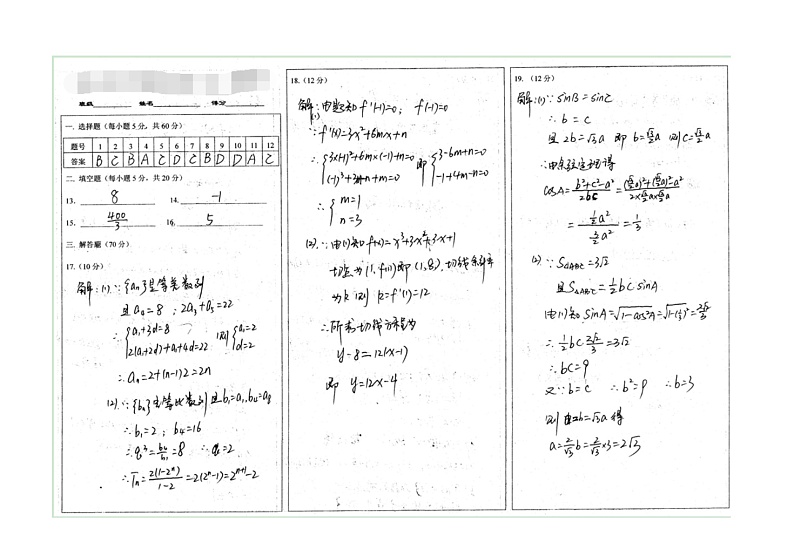 班级 姓名 得分
一. 选择题（每小题5分，共60分）
题号 1 2 3 4 5 6 7 8 9 10 11 12
答案 B C B A C D C B D D A C
二. 填空题（每小题5分，共20分）
13. 8 14. -1
15. 400/3 16. 5
三. 解答题（70分）
17.（10分）
解:(1)∵{an}是等差数列
且a4=8 ; 2a3+a5=22
∴{a1+3d=8 2(a1+2d)+a1+4d=22 则{a1=2 d=2
∴an=2+(n-1)2=2n
(2)∵{bn}是等比数列且b1=a1,b4=a8
∴b1=2 ; b4=16
∴q³=b4/b1=8 ∴q=2
∴Tn=2(1-2ⁿ)/1-2=2(2ⁿ-1)=2ⁿ⁺¹-2
18.（12分）
解:由题知f'(-1)=0; f(-1)=0
(1)
∵f'(x)=3x²+6mx+n
∴{3×(-1)²+6m×(-1)+n=0 (-1)³+3m-n+m=0 即{3-6m+n=0 -1+4m-n=0
∴{m=1 n=3
(2)∵由(1)知f(x)=x³+3x²+3x+1
切点为(1,f(1))即(1,8),切线斜率
为k 则 k=f'(1)=12
∴所求切线方程为
y-8=12(x-1)
即 y=12x-4
19.（12分）
解:(1)∵sinB=sinC
∴b=c
且2b=√3a 即b=√3/2a 则c=√3/2a
∴由余弦定理得
cosA=b²+c²-a²/2bc=(√3/2a)²+(√3/2a)²-a²/2×√3/2a×√3/2a
=½a²/3/2a²=1/3
(2)∵S△ABC=3√2
且S△ABC=½bcsinA
由(1)知sinA=√1-cos²A=√1-(1/3)²=2√2/3
∴½bc2√2/3=3√2
∴bc=9
又∵b=c ∴b²=9 ∴b=3
则由2b=√3a得
a=2/√3b=2/√3×3=2√3